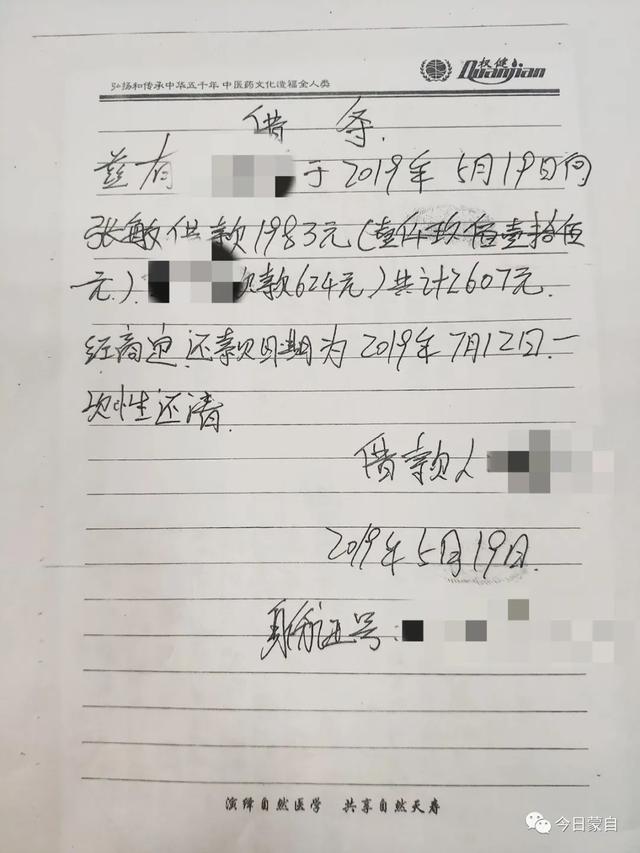 弘扬和传承中华五千年 中医药文化造福全人类
权健
Quanjian
借 条.
兹有 于2019年5月19日向
张敏借款1983元(壹仟玖佰壹拾伍
元.) 欠款624元)共计2607元.
经商定.还款日期为2019年7月12日.一
次性还清.
借款人
2019年5月19日.
身份证号:
演绎自然医学 共享自然天寿
今日蒙自